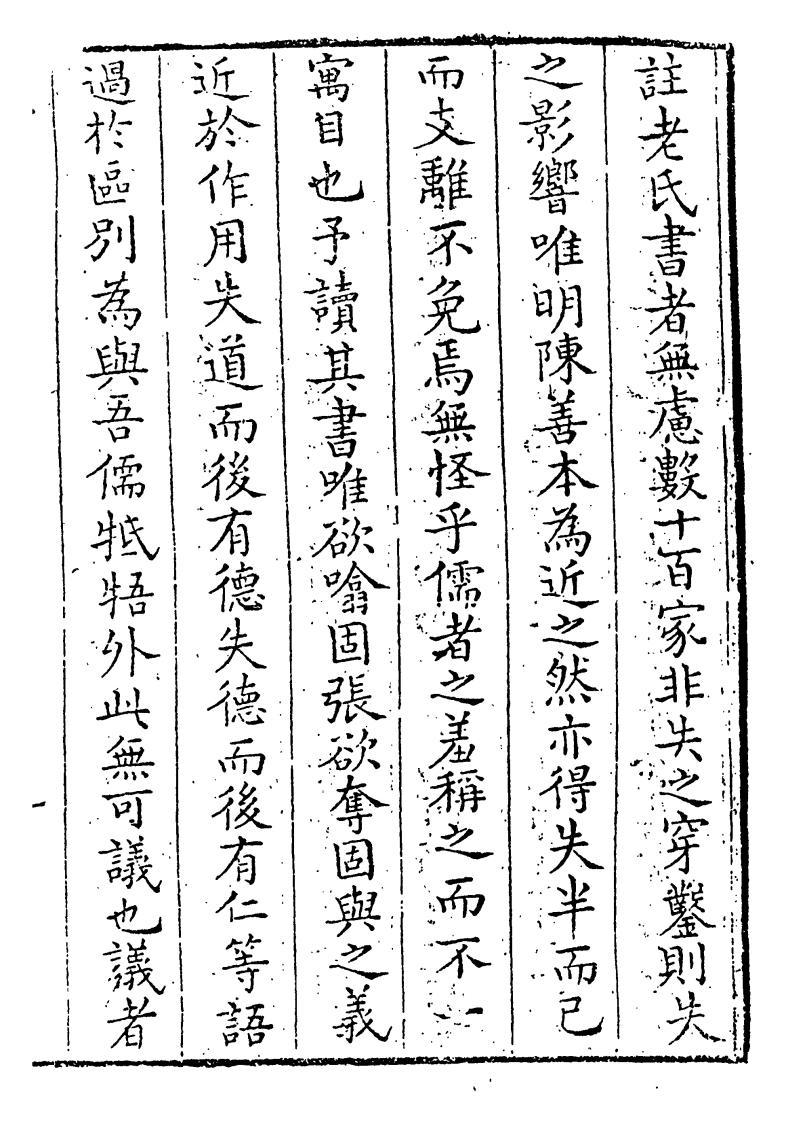 註老氏書者無慮數十百家非失之穿鑿則失
之影響唯明陳善本為近之然亦得失半而已
而支離不免焉無怪乎儒者之羞稱之而不一
寓目也予讀其書唯欲噏固張欲奪固與之義
近於作用失道而後有德失德而後有仁等語
過於區別為與吾儒牴牾外此無可議也議者